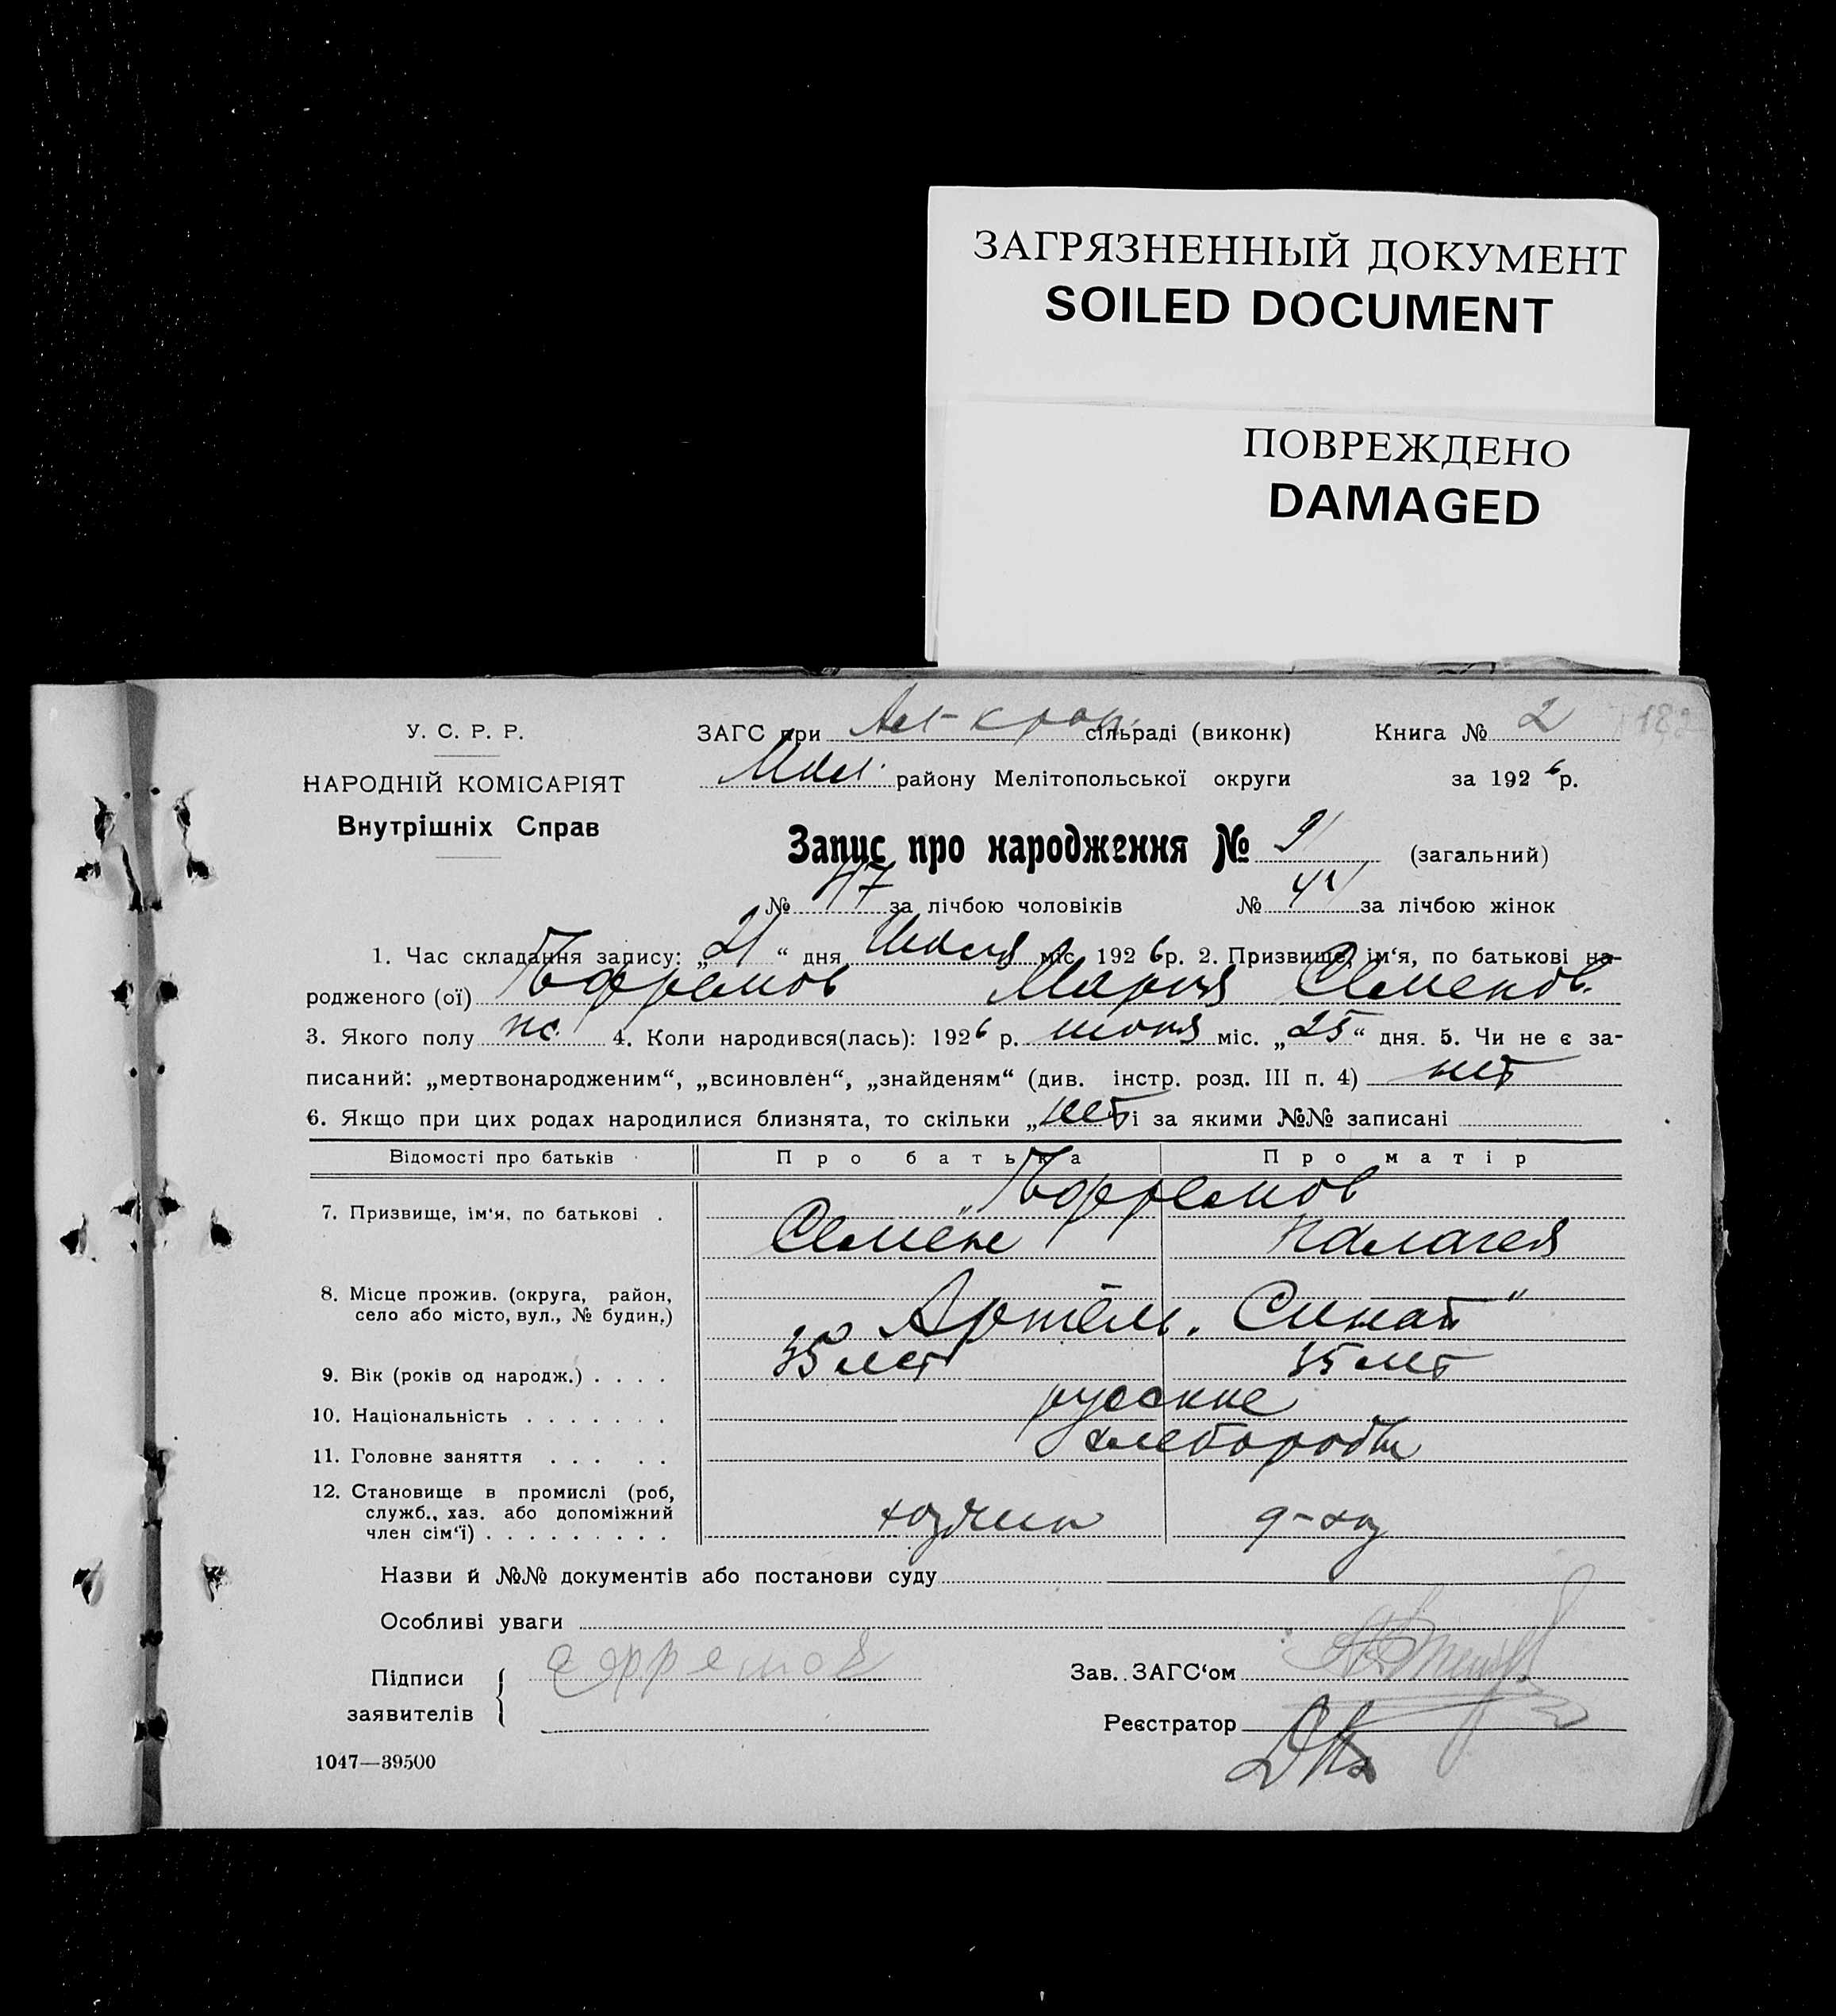 ЗАГРЯЗНЕННЫЙ ДОКУМЕНТ
SOILED DOCUMENT
ПОВРЕЖДЕНО
DAMAGED
У. С. Р. Р.
НАРОДНІЙ КОМІСАРІЯТ
Внутрішніх Справ
ЗАГС при сільраді (виконк)
Книга № 2
182
району Мелітопольської округи
за 1926 р.
Запис про народження № 91 (загальний)
№ 47 за лічбою чоловіків № 44 за лічбою жінок
1. Час складання запису: „21“ дня Июля міс. 1926 р. 2. Призвище, ім‘я, по батькові на-
родженого (ої) Ефремов Мария Семенов.
3. Якого полу ж. 4. Коли народився(лась): 1926 р. июня міс. „25“ дня. 5. Чи не є за-
писаний: „мертвонародженим“, „всиновлен“, „знайденям“ (див. інстр. розд. III п. 4) нет
6. Якщо при цих родах народилися близнята, то скільки „нет і за якими №№ записані
Відомості про батьків Про батька Про матір
7. Призвище, ім‘я, по батькові . Ефремов
Семен Палагея
8. Місце прожив. (округа, район,
село або місто, вул., № будин.) Артель „Синай"
9. Вік (років од народж.) . . . . 35 лет 35 лет
10. Національність . . . . . . . русские
11. Головне заняття . . . . . хлеборобы
12. Становище в промислі (роб,
служб., хаз. або допоміжний
член сім‘ї) . . . . . . . . . хозяин д-хоз
Назви й №№ документів або постанови суду
Особливі уваги
Підписи
заявителів
Ефремов
Зав. ЗАГС‘ом
Реєстратор
1047—39500